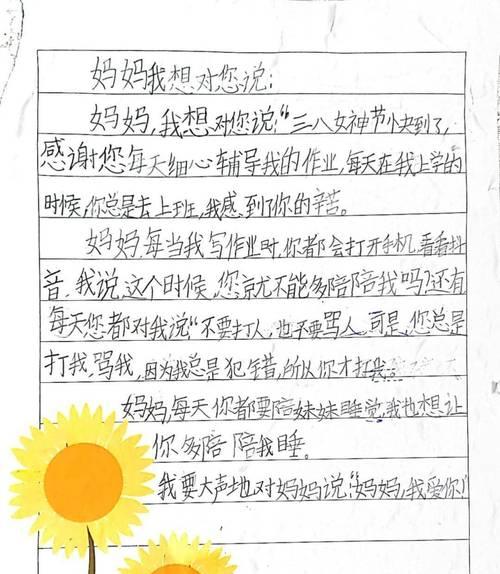 妈妈我想对您说:
妈妈,我想对您说:“三八女神节”快到了,
感谢您每天细心辅导我的作业,每天在我上学的
时候,你总是去上班,我感到了你的辛苦。
妈妈,每当我写作业时,你都会打开手机,看看抖
音,我说,这个时候,您就不能多陪陪我吗?还有
每天您都对我说“不要打人,也不要骂人,可是,您总是
打我,骂我,因为我总是犯错,所以你才打我。
妈妈,每天你都要陪妹妹睡觉,我也想让
你多陪陪我睡。
我要大声地对妈妈说:“妈妈,我爱你!